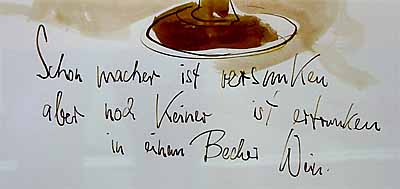 Schon mancher ist versunken
aber noch Keiner ist ertrunken
in einem Becher Wein.